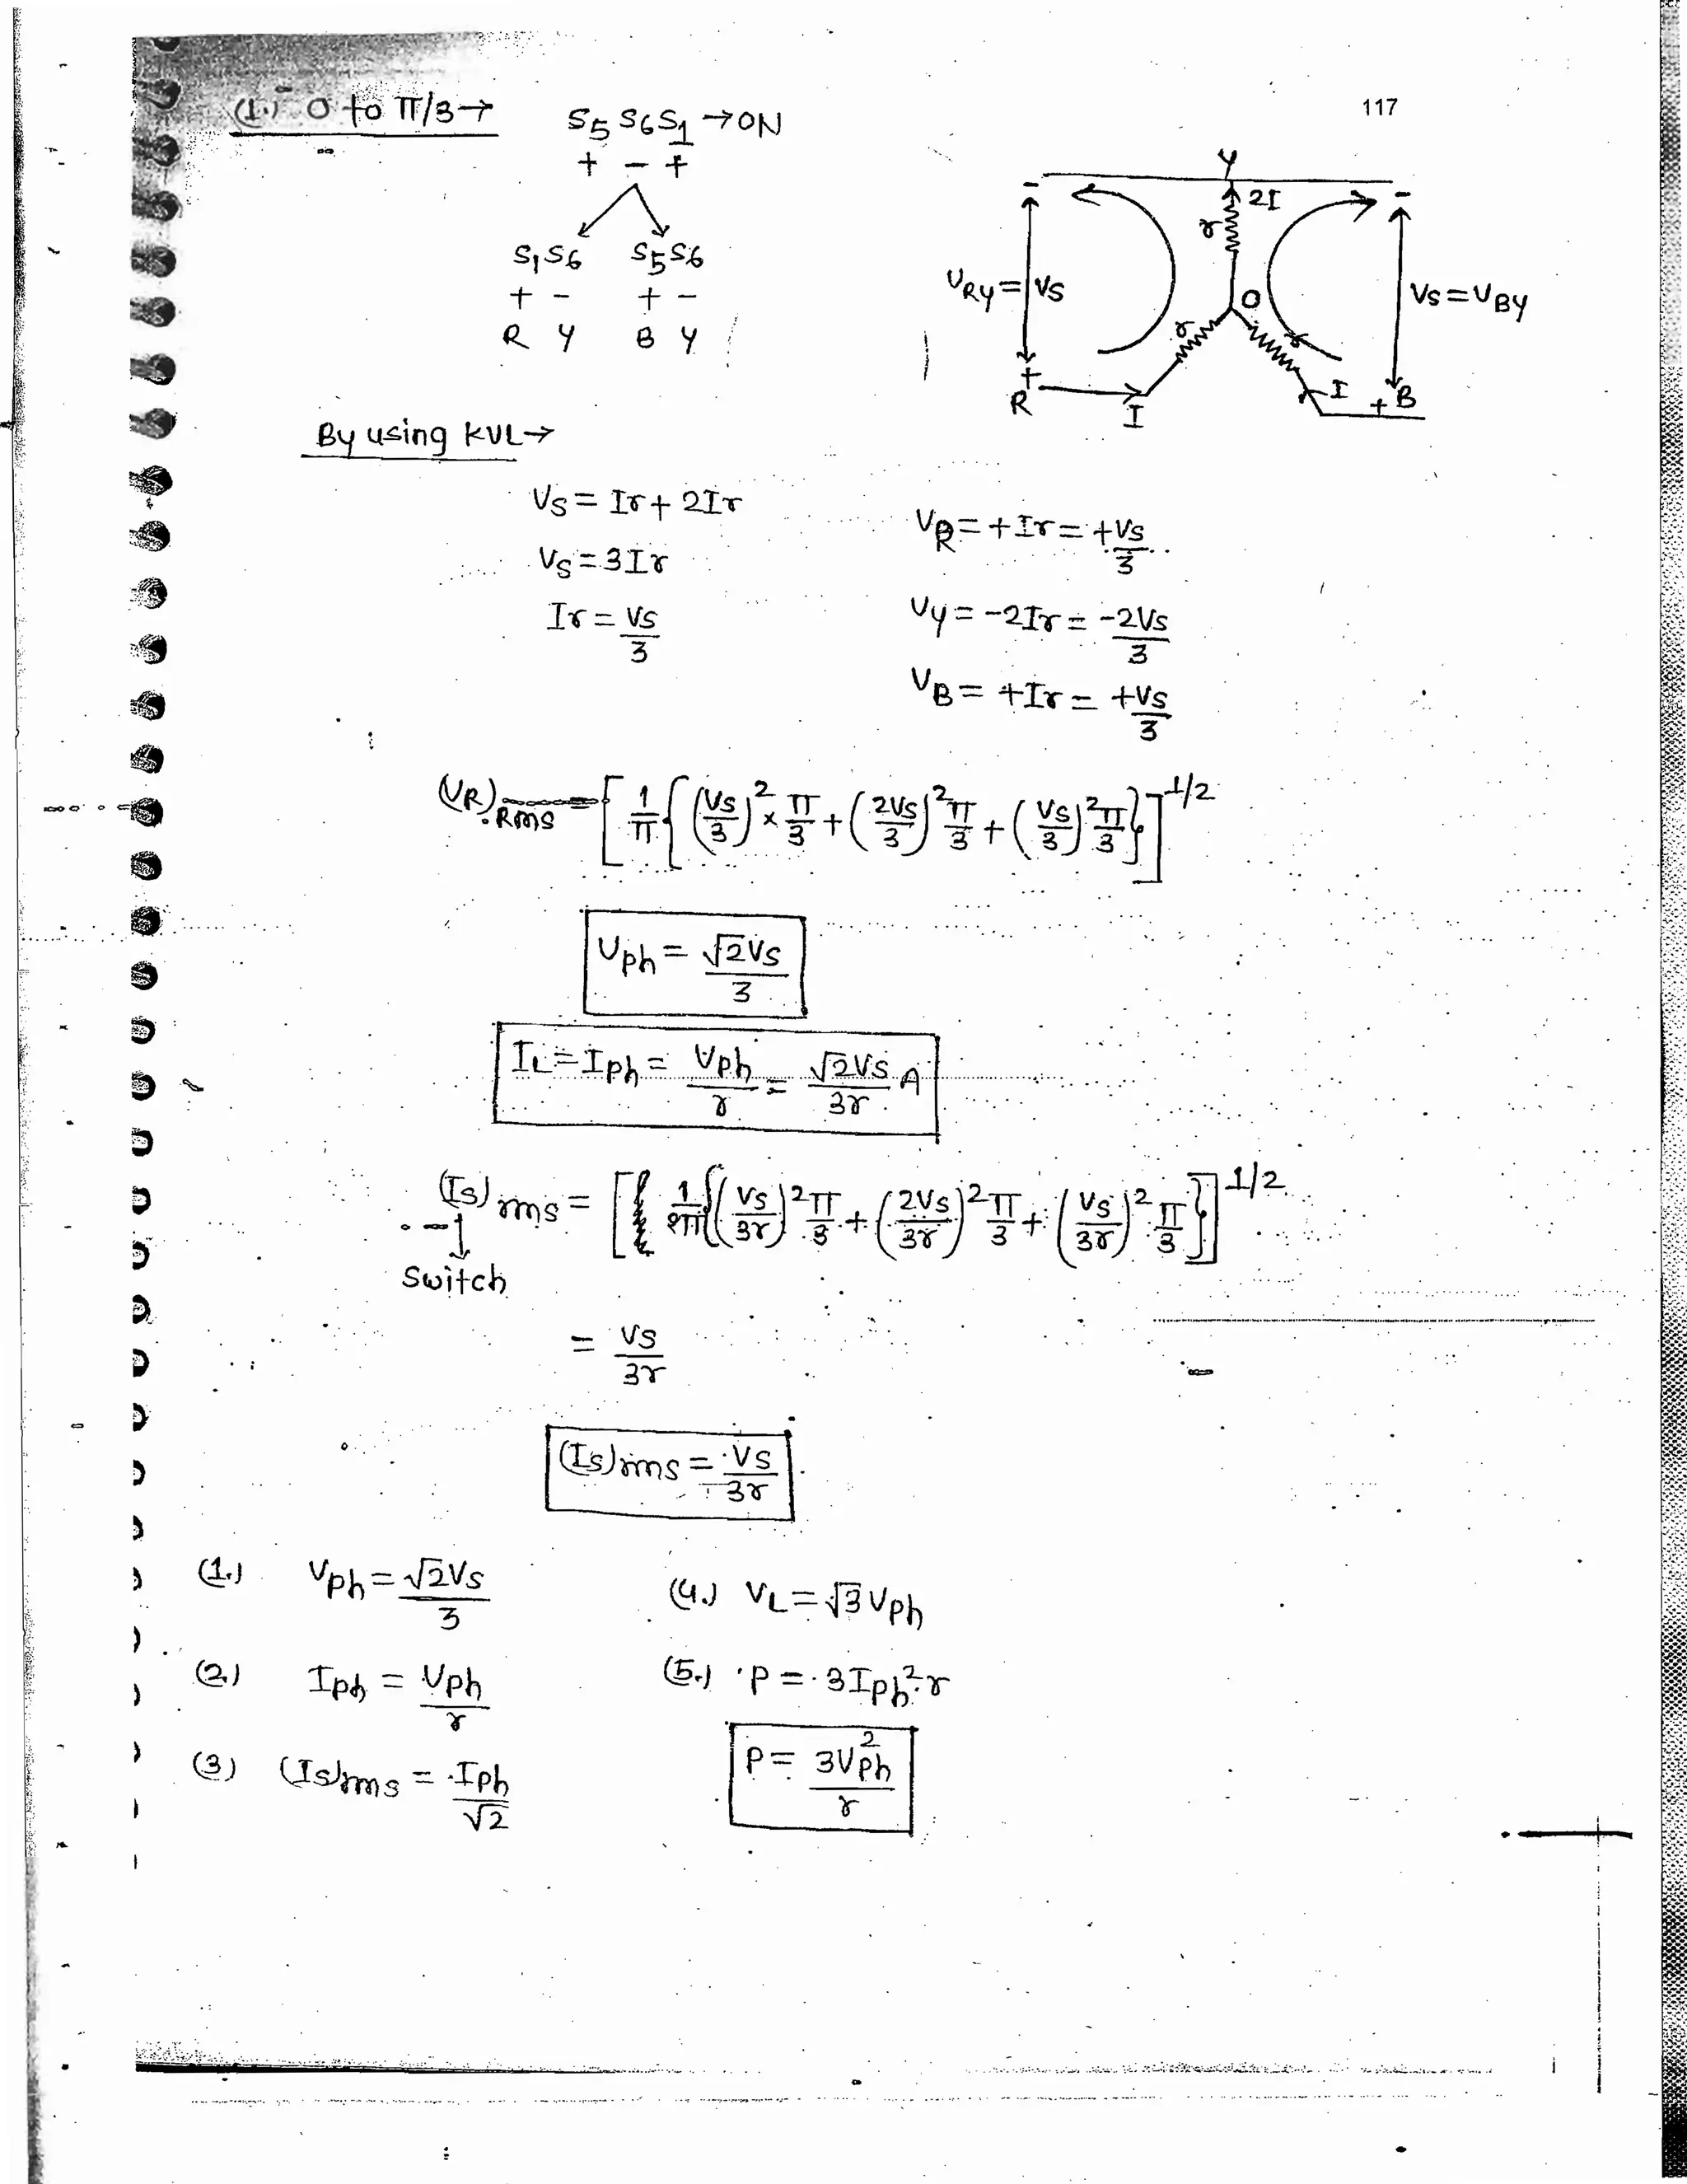 117
(1.) 0 to π/3→
S5 S6 S1 →ON
+ - +
S1S6 S5S6
+ - + -
R Y B Y
Y
- 2I -
r
VRY= VS O VS=VBY
r r
+ I + B
R I
By using KVL→
VS = Ir + 2Ir
VS = 3Ir
Ir = VS/3
VR = +Ir = +VS/3
VY = -2Ir = -2VS/3
VB = +Ir = +VS/3
(VR)Rms = [1/π{(VS/3)² × π/3 + (2VS/3)² π/3 + (VS/3)² π/3}]^1/2
Vph = √2VS/3
IL = Iph = Vph/r = √2VS/3r A
(IS)rms = [1/2π{(VS/3r)² π/3 + (2VS/3r)² π/3 + (VS/3r)² π/3}]^1/2
↓
Switch
= VS/3r
(IS)rms = VS/3r
(1.) Vph = √2VS/3
(2.) Iph = Vph/r
(3) (IS)rms = Iph/√2
(4.) VL = √3 Vph
(5.) P = 3Iph² r
P = 3Vph²/r